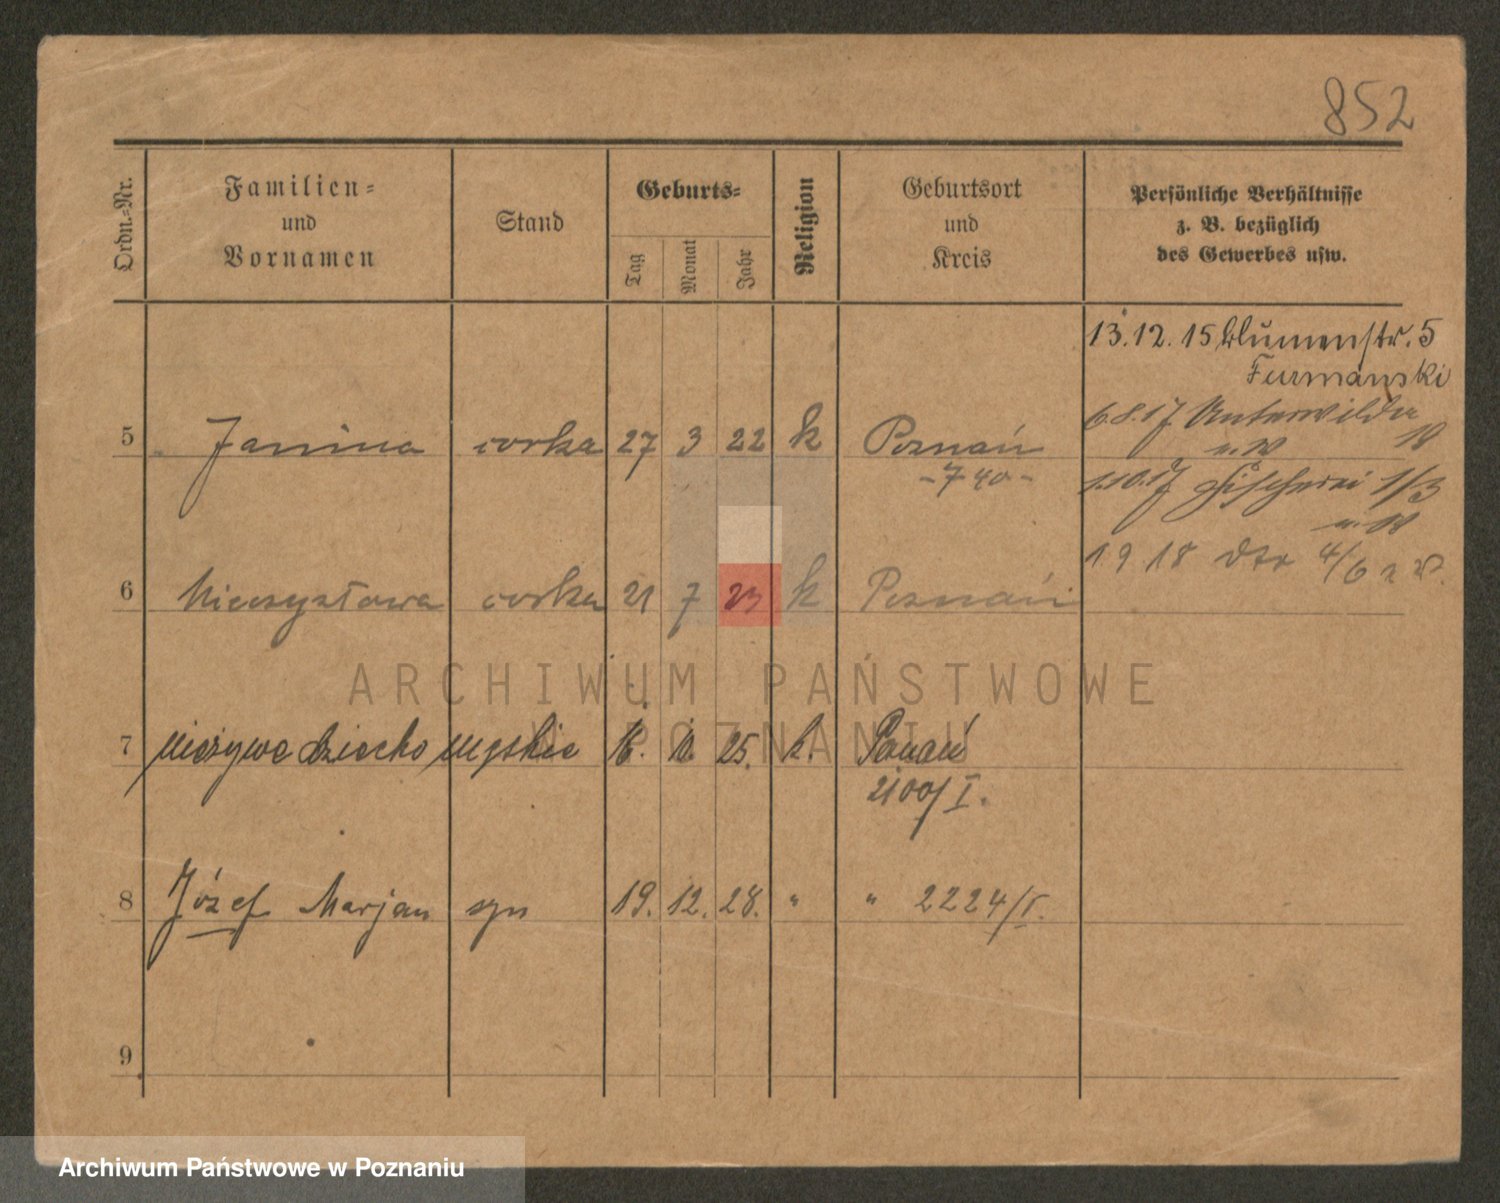 852
Ordn.-Nr.
Familien-
und
Vornamen
Stand
Geburts-
Tag
Monat
Jahr
Religion
Geburtsort
und
Kreis
Persönliche Verhältnisse
z. B. bezüglich
des Gewerbes usw.
13.12.15 Blumenstr. 5
Furmanski
5 Janina corka 27 3 22 k Poznań
6.8.17 Unterwilda
18
-740-
1.10.17 Fischerei 1/3
1 9 18 dto 4/6
6 Mieczysława corka 21 7 23 k Poznań
ARCHIWUM PAŃSTWOWE
W POZNANIU
7 nieżywe dziecko męskie 16. 10. 25. k. Poznań
2100/I.
8 Józef Marjan syn 19. 12. 28. " " 2224/I.
9
Archiwum Państwowe w Poznaniu